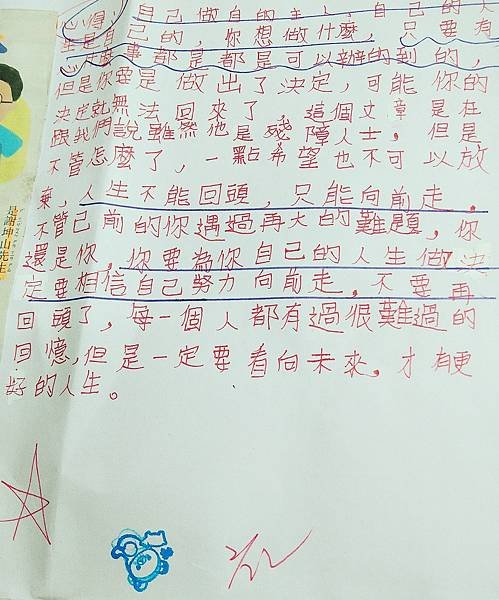 心得，自己做自的主人，自己的人
生是自己的，你想做什麼，只要有
心，事都是都是可以辦的到的，
但是你要是做出了決定，可能你的
決定就無法回來了 這個文章是在
跟我們說雖然他是殘障人士，但是
不管怎麼了，一點希望也不可以放
棄，人生不能回頭，只能向前走，
不管己前的你遇過再大的難題，你
還是你，你要為你自己的人生做決
定要相信自己努力向前走，不要再
回頭了，每一個人都有過很難過的
回憶，但是一定要看向未來，才有更
好的人生。
是謝坤山先生